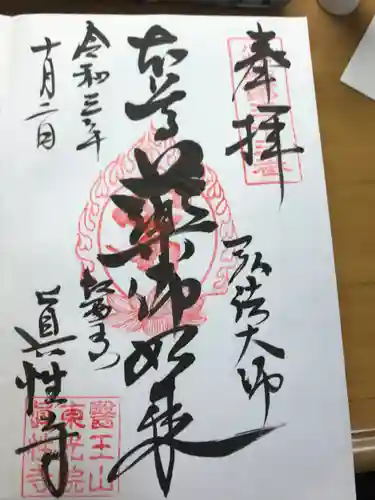 奉拝
弘法大師
本尊薬師如来
令和三年
十月二日
眞性寺
醫王山
東光院
眞性寺